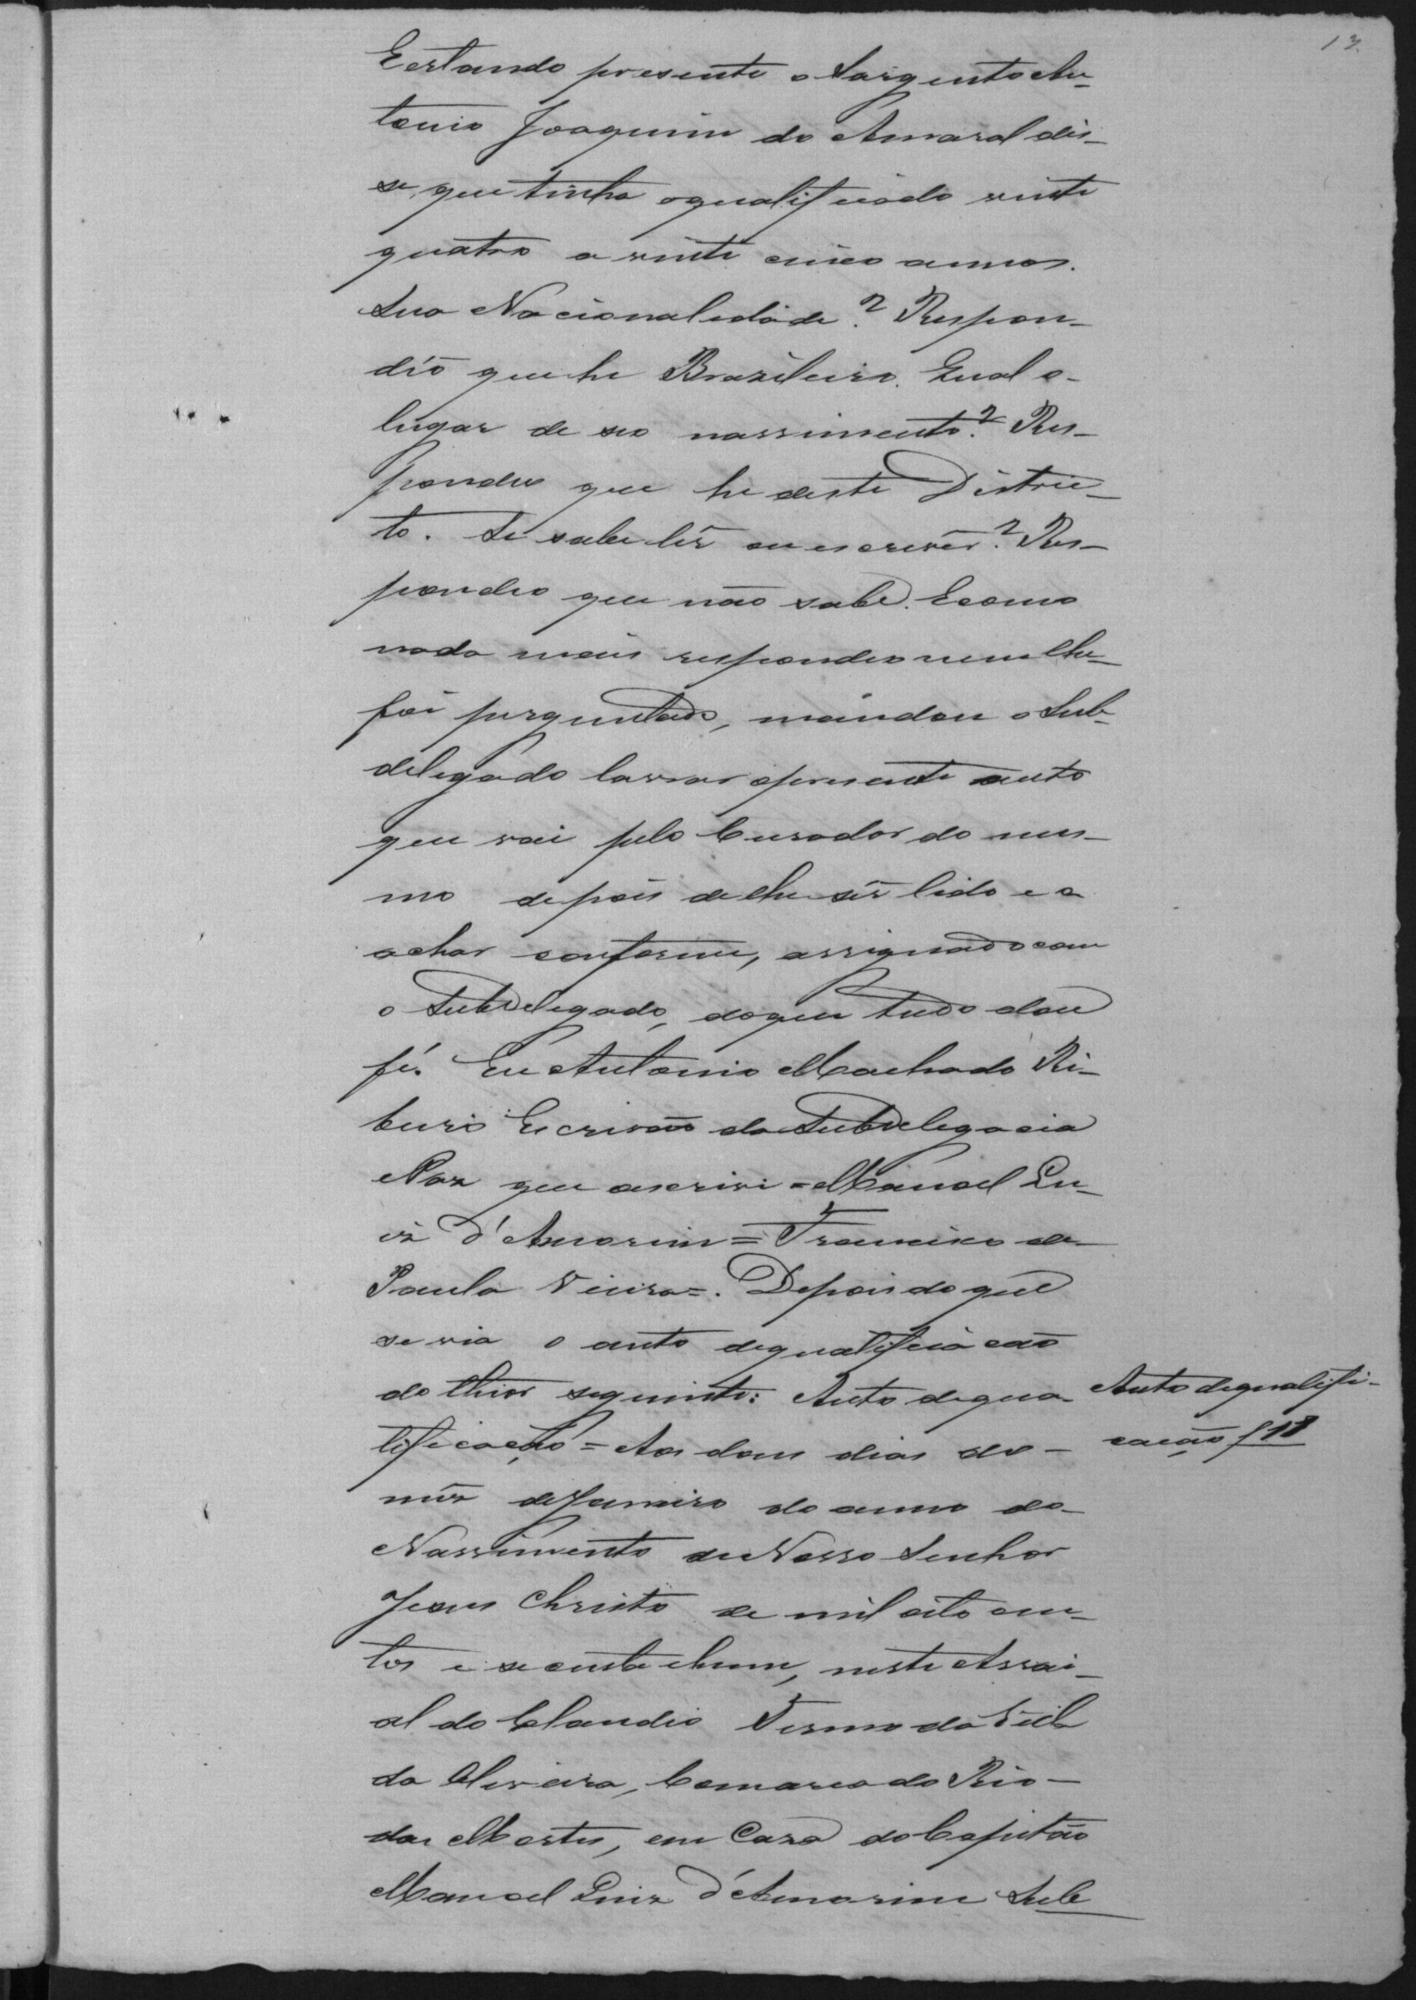 13.
E estando presente o Sargento An-
tonio Joaquim do Amaral dis-
se, que tinha o qualificado vinte
quatro a vinte cinco annos.
Sua Nacionalidade? Respon-
dêo que he Brazileiro. Qual o
lugar de seo nassimento? Res-
pondeo que he deste Distric-
to. Se sabe lêr ou escrever? Res-
pondeo que não sabe. E como
nada mais respondeo nem lhe
foi perguntado, mandou o Sub-
delegado lavrar o presente auto
que vai pelo Curador do mes-
mo depois de lhe sêr lido e o
achar conforme, assignado com
o Subdelegado, do que tudo dou
fé. Eu Antonio Machado Ri-
beiro Escrivão da Subdelegacia
e Paz que o escrivi = Manoel Lu-
iz d'Amorim = Francisco de
Paula Vieira =. Depois do que
se via o auto de qualificação
do thior seguinte: Auto de qua-
lificação = Aos dous dias do
mêz de Janeiro do anno do
Nassimento de Nosso Senhor
Jesus Christo de mil oito cen-
tos e secenta e hum, neste Arrai-
al do Claudio Termo da Villa
da Oliveira, Comarca do Rio
das Mortes, em Caza do Capitão
Manoel Luiz d'Amorim Sub
Auto de qualifi-
cação f 18